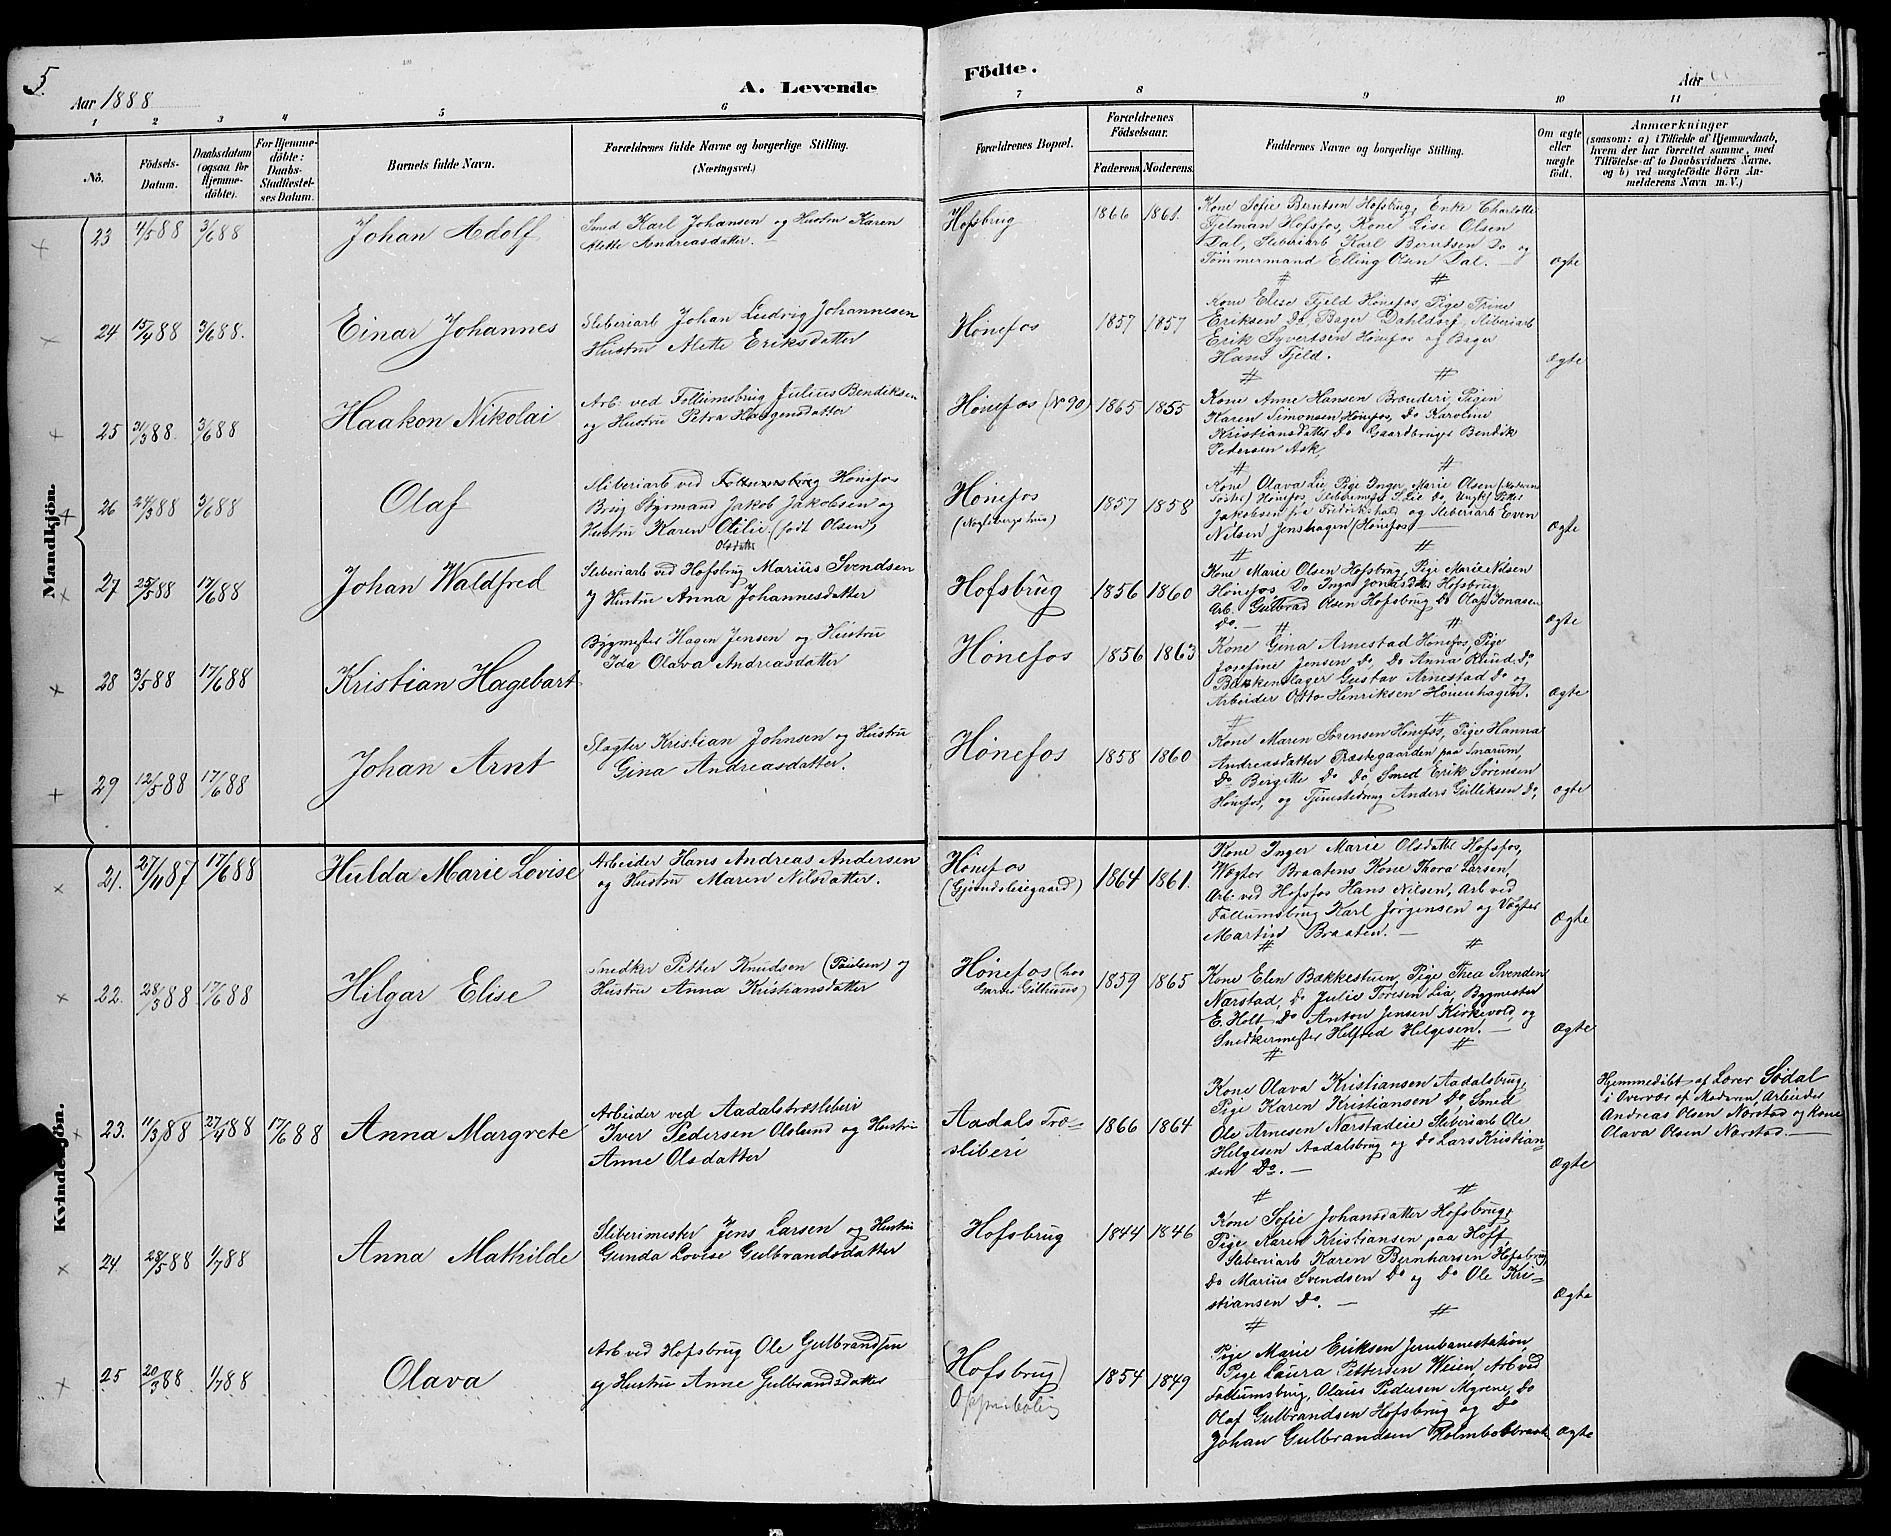 5.
Aar 1888
A. Levende
Födte.
Aar
1
2
3
4
5
6
7
8
9
10
11
No.
Födsels-
Datum.
Daabsdatum
(ogsaa for
Hjemme-
döbte).
For Hjemme-
döbte:
Daabs-
Stadfæstel-
ses Datum.
Barnets fulde Navn.
Forældrenes fulde Navne og borgerlige Stilling.
(Næringsvei.)
Forældrenes Bopæl.
Forældrenes
Födselsaar.
Faderens.
Moderens.
Faddernes Navne og borgerlige Stilling.
Om ægte
eller
uægte
födt.
Anmærkninger
(saasom: a) i Tilfælde af Hjemmedaab,
hvem der har forrettet samme, med
Tilföielse af to Daabsvidners Navne.
og b) ved uægtefödte Börn An-
melderens Navn m. V.)
Mandkjön.
23
4/5 88
3/6 88
Johan Adolf
Smed Karl Johansen og Hustru Karen
Alette Andreasdatter. —
Hofsbrug
1866
1861.
Kone Sofie Berntsen Hofsbrug, Enke Charlotte
Tjelman Hofsfos, Kone Lise Olsen
Dal, Sliberiarb Karl Berntsen Do og
Tömmermand Elling Olsen Dal. —
Ægte
24
15/4 88
3/6 88.
Einar Johannes
Sliberiarb Johan Ludvig Johannesen
Hustru Alette Eriksdatter
Hönefos
1857
1857
Kone Elise Fjeld Hönefos, Pige Trine
Eriksen Do, Bager Dahldorf, Sliberiarb
Erik Syvertsen Hönefos og Bager
Hans Fjeld.
Ægte
25
31/3 88
3/6 88
Haakon Nikolai
Arb. ved Follumsbrug Julius Bendiksen
og Hustru Petra Haagensdatter
Hönefos (No 90)
1865
1855
Kone Anne Hansen Brænderi, Pigen
Karen Simonsen Hönefos, Do Karoline
Kristiansdatter Do Gaardbruger Bendik
Pedersen Ask,
26
24/3 88
3/6 88
Olaf
Sliberiarb ved Follumsbrug Hönefos
Brug Styrmand Jakob Jakobsen og
Hustru Karen Otilie (födt Olsen)
Olsdatter
Hönefos
1857
1858
Kone Olava Lie, Pige Inger Marie Olsen (Moderens
Söster) Hönefos, Slibemester S. Lie Do, Ungk. Petter
Jakobsen fra Fredrikshald og Sliberiarb Even
Nilsen Jenshagen (Hönefos) —
Ægte
27
25/5 88
17/6 88
Johan Waldfred
Sliberiarb ved Hofsbrug Marius Svendsen
og Hustru Anna Johannesdatter
Hofsbrug
1856
1860
Kone Marie Olsen Hofsbrug, Pige Marie Nilsen
Hönefos Do Inga Jonasdat Hofsbrug
Arb. Gulbrad Olsen Hofsbrug Do Olaf Jonasen
Do. —
Ægte
28
3/5 88
17/6 88
Kristian Hagebart
Bygmester Hagen Jensen og Hustru
Ida Olava Andreasdatter
Hönefos
1856
1863
Kone Gina Arnestad Hönefos, Pige
Josefine Jensen Do, Do Anna Knud. Do,
Bakkenslager Gustav Arnestad Do og
Arbeider Otto Henriksen Hönenhagen.
Ægte
29
12/5 88
17/6 88
Johan Arnt
Slagter Kristian Johnsen og Hustru
Gina Andreasdatter.
Hönefos
1858
1860
Kone Maren Sörensen Hönefos, Pige Hanna
Andreasdatter Præstegaarden paa Snarum,
Do Bergitte Do Do Smed Erik Sörensen
Hönefos, og Tjenestedreng Anders Gulliksen Do,
Ægte
Kvindekjön.
21.
27/11 87
17/6 88
Hulda Marie Lovise
Arbeider Hans Andreas Andersen
og Hustru Maren Nilsdatter.
Hönefos
1864
1861.
Kone Inger Marie Olsdatter Hofsfos,
Vægter Braatens Kone Thora Larsen,
Arb. ved Hofsfos Hans Nilsen, Arb ved
Follumsbrug Karl Jörgensen og Vægter
Martin Braaten. —
Ægte
22.
28/3 88
17/6 88
Hilgar Elise
Snedker Petter Knudsen (Paulsen) og
Hustru Anna Kristiansdatter
Hönefos (hos
Garver Gilhuus)
1859
1865
Kone Elen Bakkestuen, Pige Thea Svenden
Nærstad, Do Julie Toresen Lia, Bygmester
E. Holt Do Anton Jensen Kirkevold, og
Snedkermester Helfred Helgesen. —
Ægte
23.
11/3 88
27/4 88
17/6 88
Anna Margrete
Arbeider ved Aadalstræsliberi
Iver Pedersen Olslund og Hustru
Anne Olsdatter
Aadals Træ=
sliberi
1866
1864
Kone Olava Kristiansen Aadalsbrug,
Pige Karen Kristiansen Do, Smed
Ole Arnesen Nærstadeie Sliberiarb Ole
Helgesen Aadalsbrug og Do Lars Kristian-
sen Do. —
Ægte
Hjemmedöbt af Lærer Södal
i Overvær af Moderen, Arbeider
Andreas Olsen Nærstad og Kone
Olava Olsen Nærstad. —
24
28/5 88
1/7 88
Anna Mathilde
Sliberimester Jens Larsen og Hustru
Gunda Lovise Gulbrandsdatter
Hofsbrug
1844
1846
Kone Sofie Johansdatter Hofsbrug,
Pige Karen Kristiansen paa Hoff
Sliberiarb Karen Bernharsen Hofsbrug,
Do Marius Svendsen Do og Do Ole Kri=
stiansen Do. —
Ægte
25
20/3 88
1/7 88
Olava
Arb ved Hofsbrug Ole Gulbrandsen
og Hustru Anne Gulbrandsdatter
(Hofsbrug)
1854
1849
Pige Marie Eriksen Jernbanestation,
Pige Laura Pettersen Weien, Arb ved
Follumsbrug, Olaus Pedersen Myrene, Do
Olaf Gulbrandsen Hofsbrug og Do
Johan Gulbrandsen Holmbobraat.
Ægte